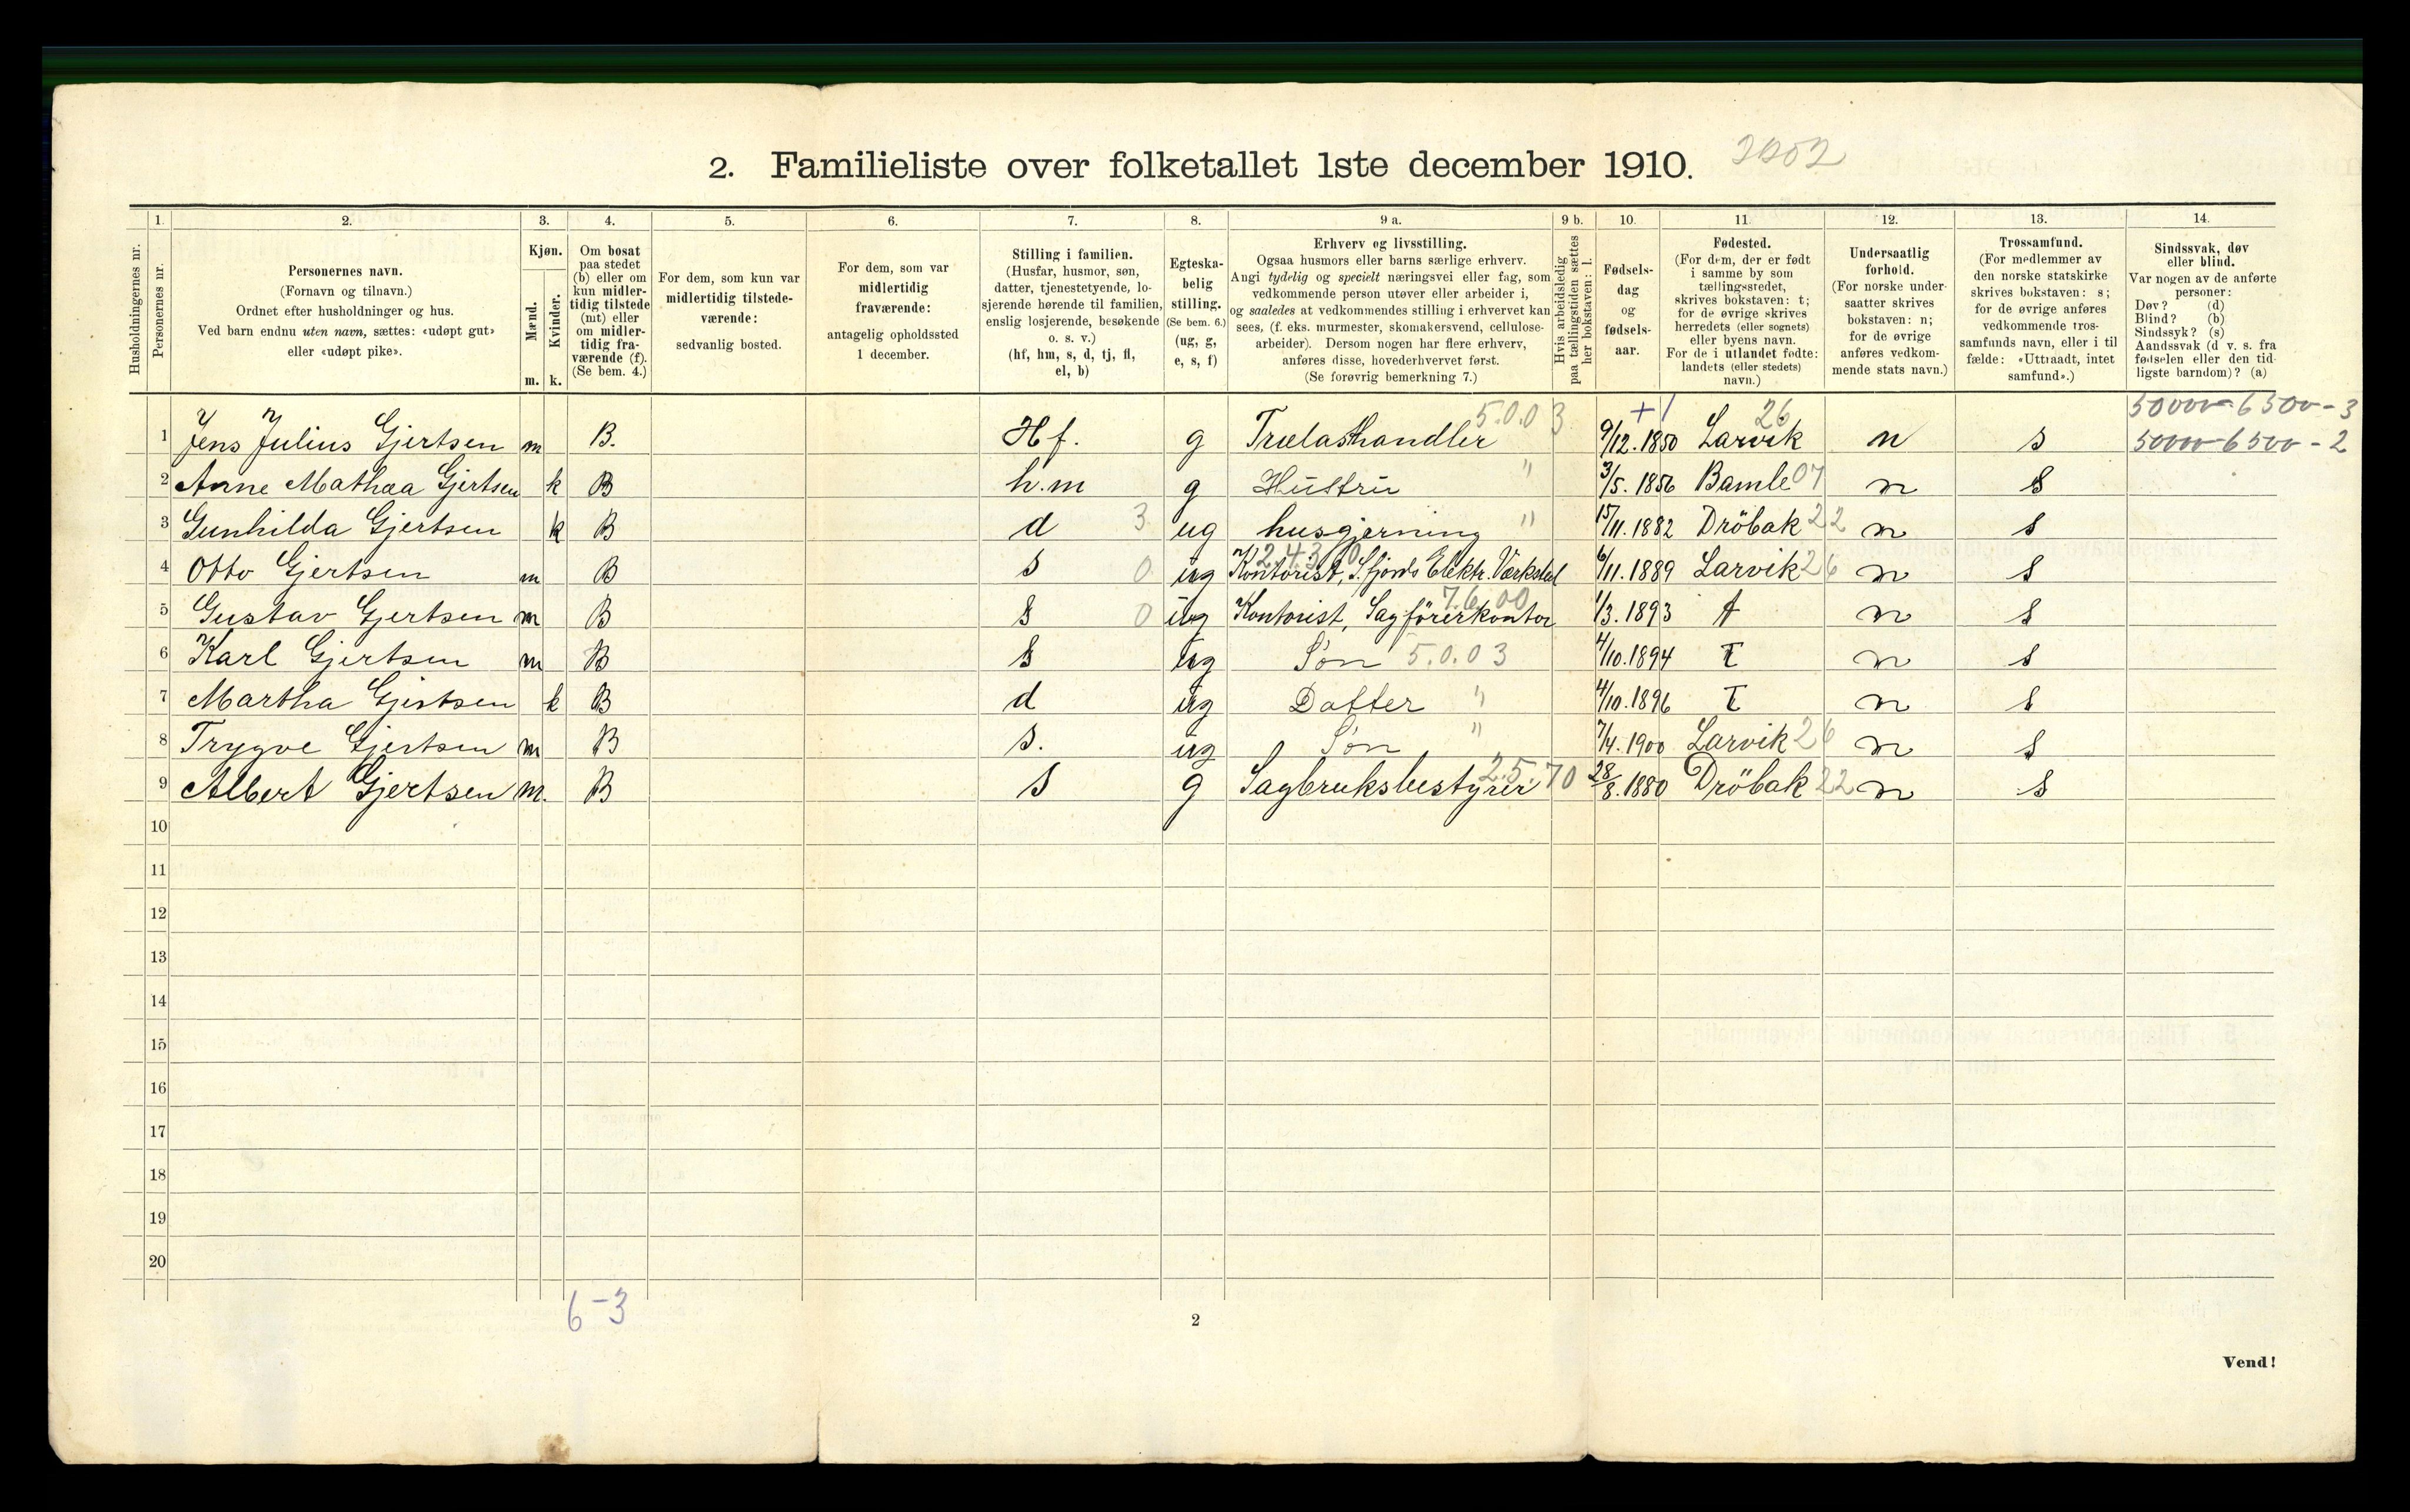 2. Familieliste over folketallet 1ste december 1910. 2202
Husholdningernes nr.
1. Personernes nr.
2. Personernes navn.
(Fornavn og tilnavn.)
Ordnet efter husholdninger og hus.
Ved barn endnu uten navn, sættes: «udøpt gut»
eller «udøpt pike».
3. Kjøn.
Mænd. m.
Kvinder. k.
4. Om bosat
paa stedet
(b) eller om
kun midler-
tidig tilstede
(mt) eller
om midler-
tidig fra-
værende (f).
(Se bem. 4.)
5. For dem, som kun var
midlertidig tilstede-
værende:
sedvanlig bosted.
6. For dem, som var
midlertidig
fraværende:
antagelig opholdssted
1 december.
7. Stilling i familien.
(Husfar, husmor, søn,
datter, tjenestetyende, lo-
sjerende hørende til familien,
enslig losjerende, besøkende
o. s. v.)
(hf, hm, s, d, tj, fl,
el, b)
8. Egteska-
belig
stilling.
(Se bem. 6.)
(ug, g,
e, s, f)
9 a. Erhverv og livsstilling.
Ogsaa husmors eller barns særlige erhverv.
Angi tydelig og specielt næringsvei eller fag, som
vedkommende person utøver eller arbeider i,
og saaledes at vedkommendes stilling i erhvervet kan
sees, (f. eks. murmester, skomakersvend, cellulose-
arbeider). Dersom nogen har flere erhverv,
anføres disse, hovederhvervet først.
(Se forøvrig bemerkning 7.)
9 b. Hvis arbeidsledig
paa tællingstiden sættes
her bokstaven: l.
10. Fødsels-
dag
og
fødsels-
aar.
11. Fødested.
(For dem, der er født
i samme by som
tællingsstedet,
skrives bokstaven: t;
for de øvrige skrives
herredets (eller sognets)
eller byens navn.
For de i utlandet fødte:
landets (eller stedets)
navn.)
12. Undersaatlig
forhold.
(For norske under-
saatter skrives
bokstaven: n;
for de øvrige
anføres vedkom-
mende stats navn.)
13. Trossamfund.
(For medlemmer av
den norske statskirke
skrives bokstaven: s;
for de øvrige anføres
vedkommende tros-
samfunds navn, eller i til
fælde: «Uttraadt, intet
samfund».)
14. Sindssvak, døv
eller blind.
Var nogen av de anførte
personer:
Døv? (d)
Blind? (b)
Sindssyk? (s)
Aandssvak (d v. s. fra
fødselen eller den tid-
ligste barndom)? (a)
5.0.0 3 + 1 26 50000-6500-3
1 Jens Julius Gjertsen m B. Hf. g Trælasthandler 9/12.1850 Larvik n s 50000-6500-2
2 Anne Mathæa Gjertsen k B h.m g Hustru " 3/5.1856 Bamle 07 n s
3 Gunhilda Gjertsen k B d 3 ug husgjerning " 15/11.1882 Dröbak 22 n s
2.4.3 0
4 Otto Gjertsen m B s 0 ug Kontorist, S.fjords Elektr. Værksted 6/11.1889 Larvik 26 n s
7.6.00
5 Gustav Gjertsen m B s 0 ug Kontorist, Sagförerkontor 1/3.1893 t n s
6 Karl Gjertsen m B s ug Søn 5.0.03 4/10.1894 T n s
7 Martha Gjertsen k B d ug Datter " 4/10.1896 T n s
8 Trygve Gjertsen m B s. ug Søn " 7/4.1900 Larvik 26 n s
9 Albert Gjertsen m. B s g Sagbruksbestyrer 2.5.70 28/8.1880 Dröbak 22 n s
10
11
12
13
14
15
16
17
18
19
20
6-3
2
Vend!